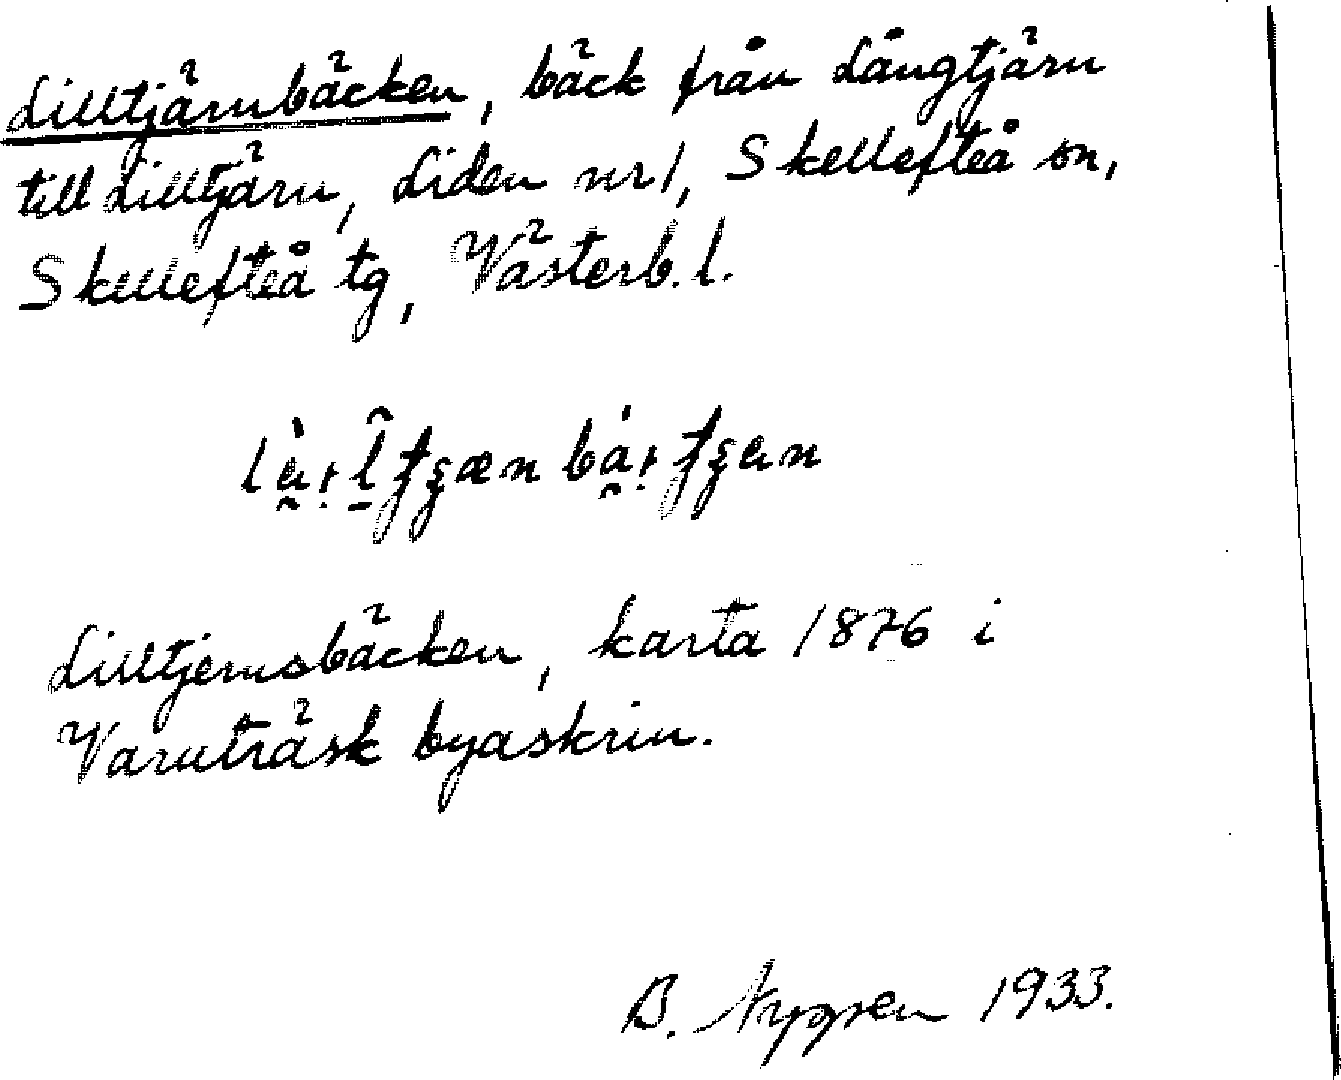 Lilltjärnbäcken, bäck från Långtjärn
till Lilltjärn, Liden nr 1, Skellefteå sn,
Skellefteå tg, Västerb. l.
Lilltjernsbäcken, karta 1876 i
Varuträsk byaskrin.
B. Nygren 1933.